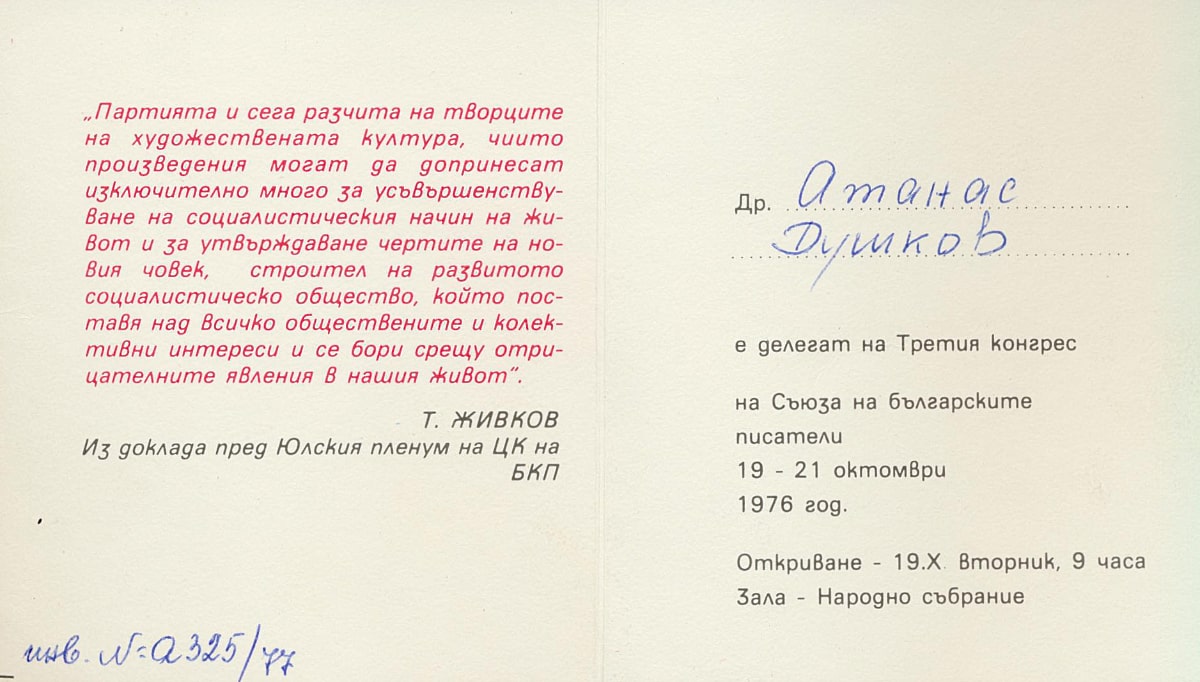 „Партията и сега разчита на творците
на художествената култура, чиито
произведения могат да допринесат
изключително много за усъвършенству-
ване на социалистическия начин на жи-
вот и за утвърждаване чертите на но-
вия човек, строител на развитото
социалистическо общество, който пос-
тавя над всичко обществените и колек-
тивни интереси и се бори срещу отри-
цателните явления в нашия живот“.
Т. ЖИВКОВ
Из доклада пред Юлския пленум на ЦК на
БКП
инв. №а325/77
Др. Атанас
Душков
е делегат на Третия конгрес
на Съюза на българските
писатели
19 - 21 октомври
1976 год.
Откриване - 19.X. вторник, 9 часа
Зала - Народно събрание